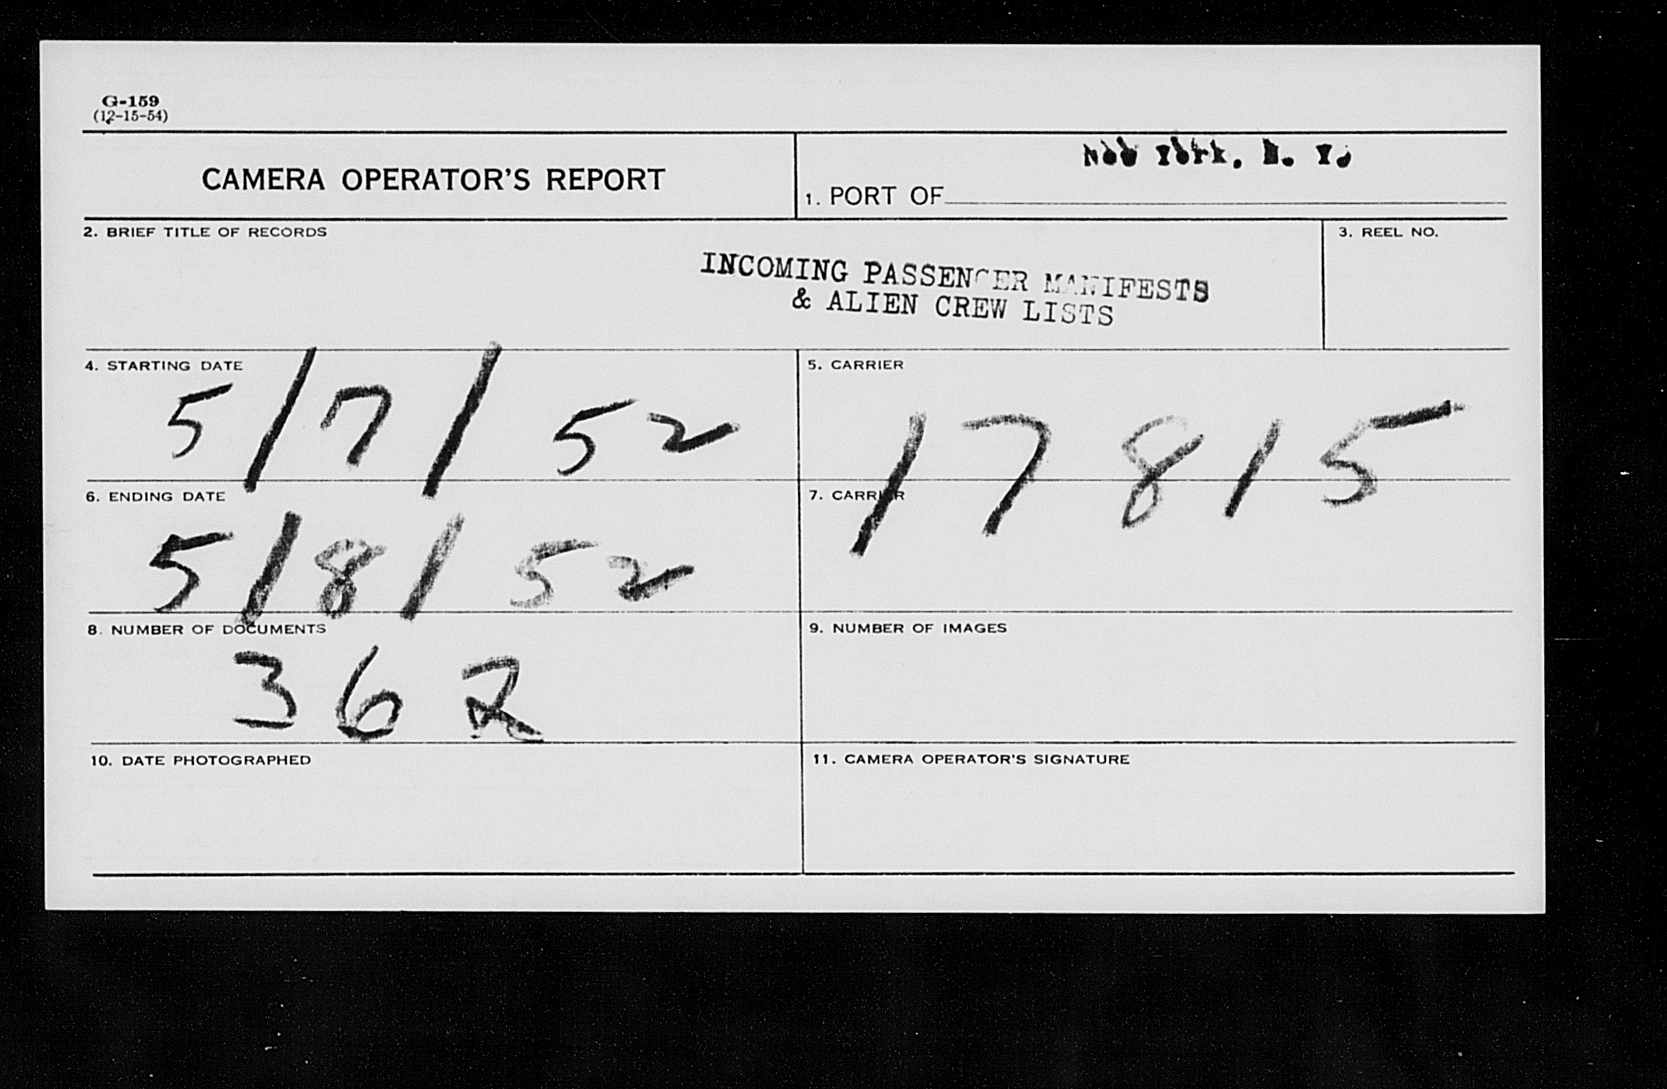 G-159
(12-15-54)
CAMERA OPERATOR'S REPORT
1. PORT OF New York, N. Y.
2. BRIEF TITLE OF RECORDS
INCOMING PASSENGER MANIFESTS
& ALIEN CREW LISTS
3. REEL NO.
4. STARTING DATE
5/7/52
5. CARRIER
17815
6. ENDING DATE
5/8/52
7. CARRIER
8. NUMBER OF DOCUMENTS
362
9. NUMBER OF IMAGES
10. DATE PHOTOGRAPHED
11. CAMERA OPERATOR'S SIGNATURE